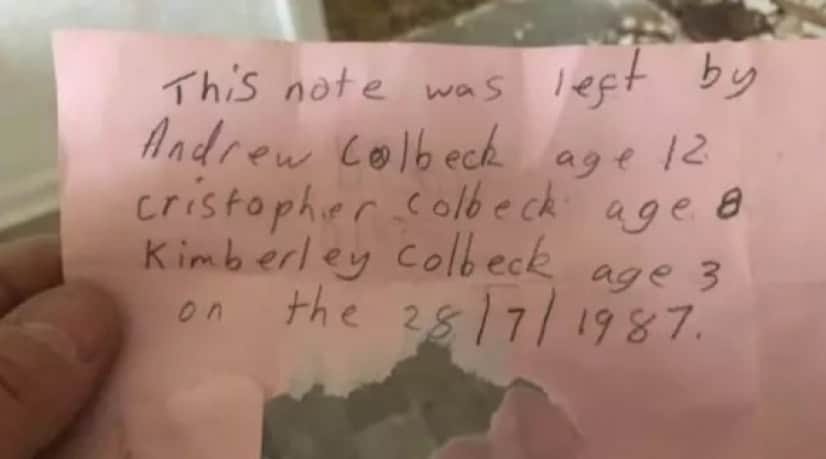 This note was left by
Andrew Colbeck age 12
cristopher colbeck age 8
Kimberley Colbeck age 3
on the 28/7/1987.